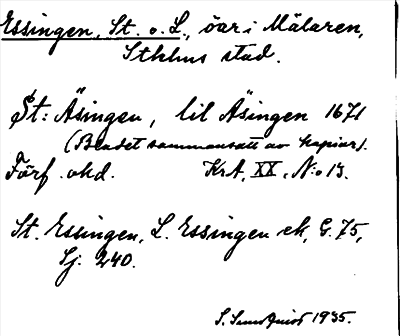 Essingen, St. o. L., öar i Mälaren,
Sthlms stad.
St: Äsingen, lil Äsingen 1671
(Bladet sammansatt av kopior).
Förf. okd. KrA, XX, N:o 13.
St. Essingen, L. Essingen ek, G. 75,
Sj. 240.
S. 1935.